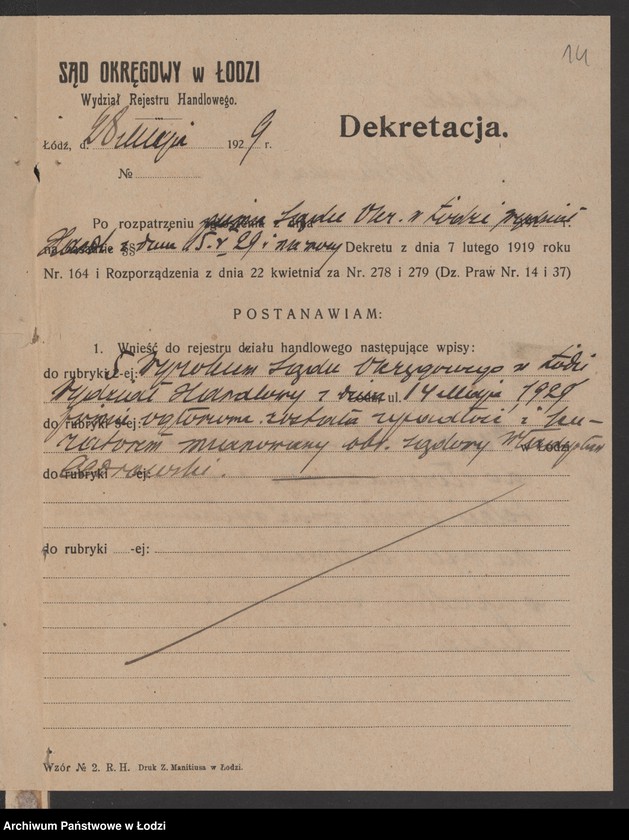 14
SĄD OKRĘGOWY w ŁODZI
Wydział Rejestru Handlowego.
Łódź, d. 28 maja 1929 r.
Dekretacja.
№
Po rozpatrzeniu Sądu Okr. w Łodzi
Handl. z dnia 15.V.29 i na mocy Dekretu z dnia 7 lutego 1919 roku
Nr. 164 i Rozporządzenia z dnia 22 kwietnia za Nr. 278 i 279 (Dz. Praw Nr. 14 i 37)
POSTANAWIAM:
1. Wnieść do rejestru działu handlowego następujące wpisy:
do rubryki 5-ej: Wyrokiem Sądu Okręgowego w Łodzi
Wydział Handlowy z dnia ul. 14 Maja 1929
do rubryki -ej: ogłoszona została upadłość i ku-
ratorem mianowany obr. sądowy w Łodzi
do rubryki -ej:
do rubryki -ej:
Wzór № 2. R. H. Druk Z. Manitiusa w Łodzi.
Archiwum Państwowe w Łodzi